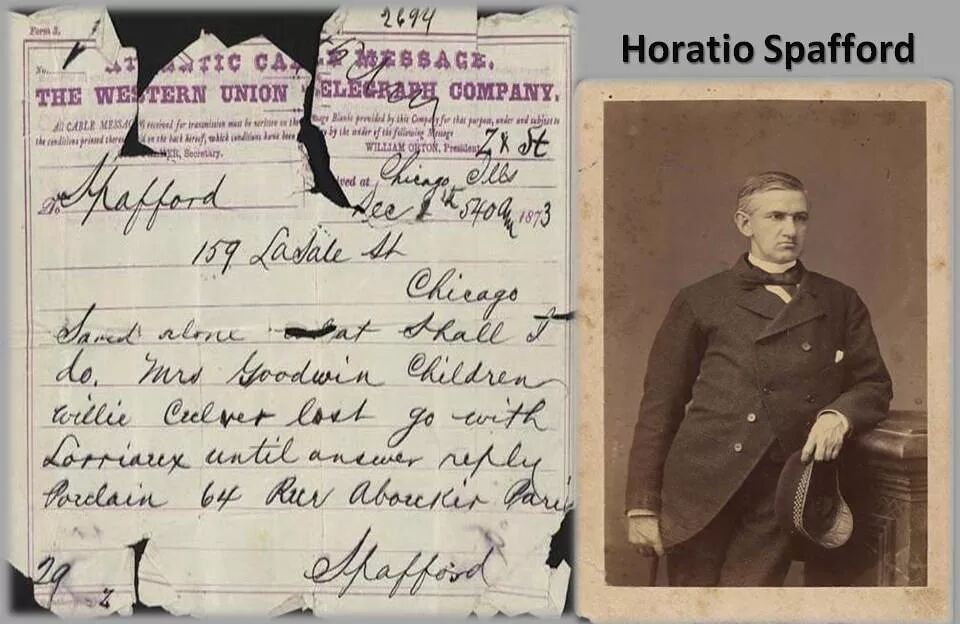 2694
Form 2.
No.
ATLANTIC CABLE MESSAGE.
THE WESTERN UNION TELEGRAPH COMPANY.
All CABLE MESSAG received for transmission must be written on the age Blanks provided by this Company for that purpose, under and subject to
the conditions printed thereo on the back hereof, which conditions have been by the sender of the following Message
ER, Secretary.
WILLIAM ORTON, President
Z x St
ived at Chicago Ills
Dec 540am 1873
To Spafford
159 LaSale St
Chicago
Saved alone what shall I
do. Mrs Goodwin Children
Willie Culver lost go with
Lorriaux until answer reply
Porclain 64 Rue Aboukir Paris
Spafford
29 z
Horatio Spafford